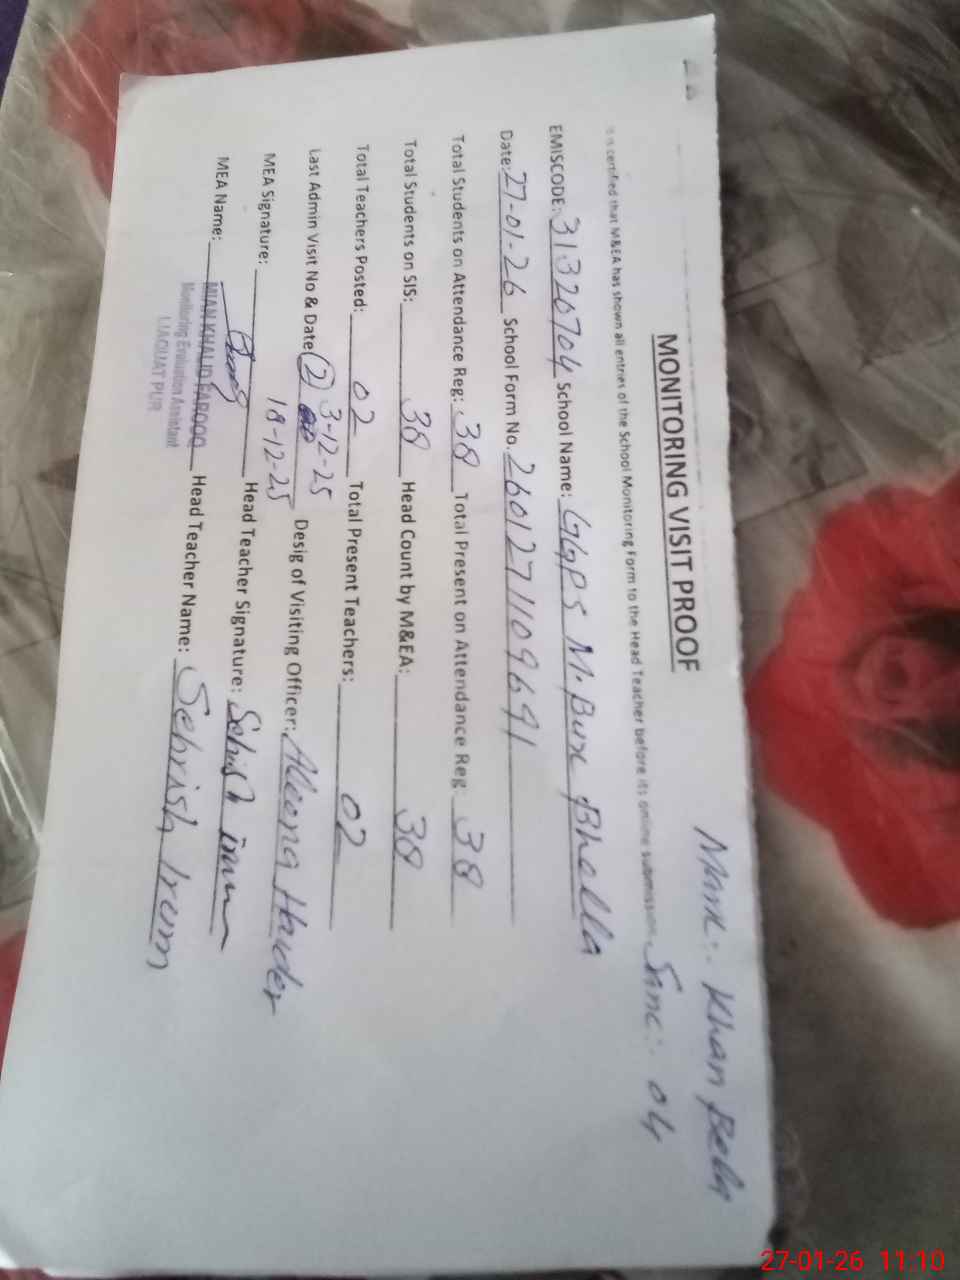 Mark:- Khan Bela
MONITORING VISIT PROOF
It is certified that M&EA has shown all entries of the School Monitoring Form to the Head Teacher before its online submission. Snmc:- 04
EMISCODE: 31320704 School Name: GGPS M. Bux Bhella
Date: 27-01-26 School Form No. 2601271109691
Total Students on Attendance Reg: 38 Total Present on Attendance Reg: 38
Total Students on SIS: 38 Head Count by M&EA: 38
Total Teachers Posted: 02 Total Present Teachers: 02
Last Admin Visit No & Date (2) 3-12-25 Desig of Visiting Officer: Haider
18-12-25
MEA Signature: Head Teacher Signature: Sehrish Irum
MEA Name: MIAN KHALID FAROOQ Head Teacher Name: Sehrish Irum
Monitoring Evaluation Assistant
LIAQUAT PUR
27-01-26 11:10